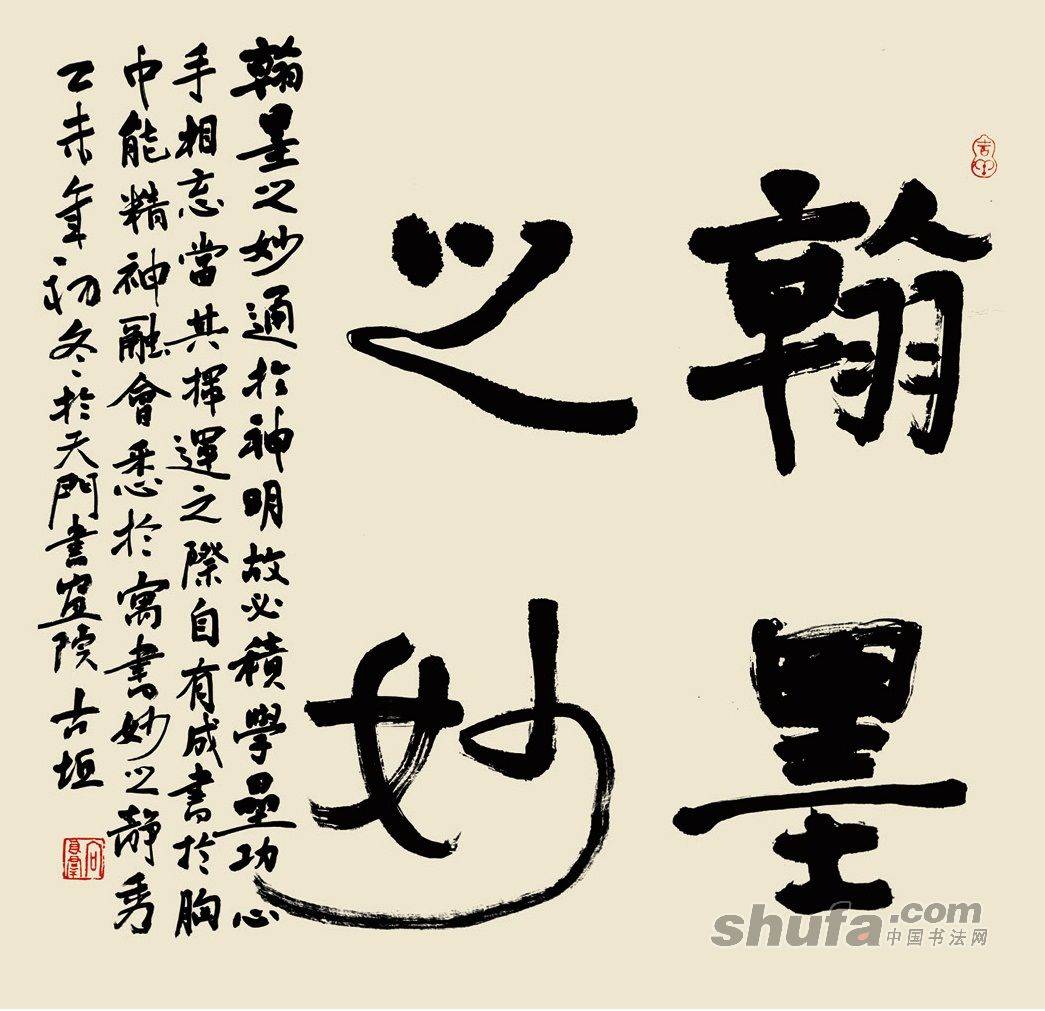 翰墨
之妙
翰墨之妙通於神明故必積學壘功心
手相忘當其揮運之際自有成書於胸
中能精神融會悉於寓書妙之靜秀
乙未年初冬於天門書畫院古垣
shufa.com
中国书法网